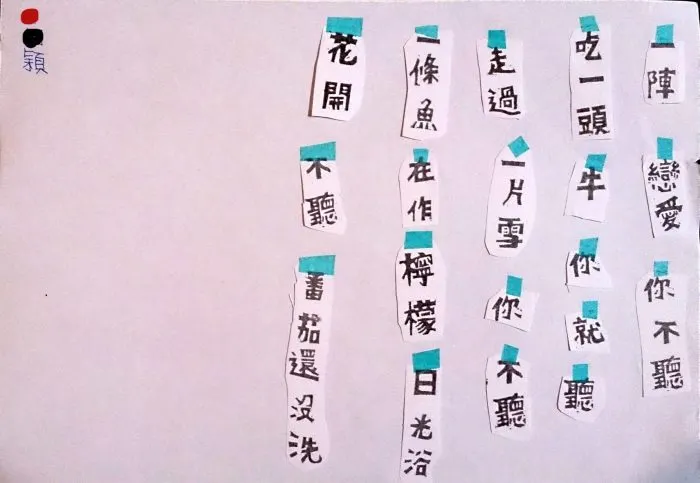 一陣戀愛你不聽
吃一頭牛你就聽
走過一片雪你不聽
一條魚在作檸檬日光浴
花開不聽番茄還沒洗
穎